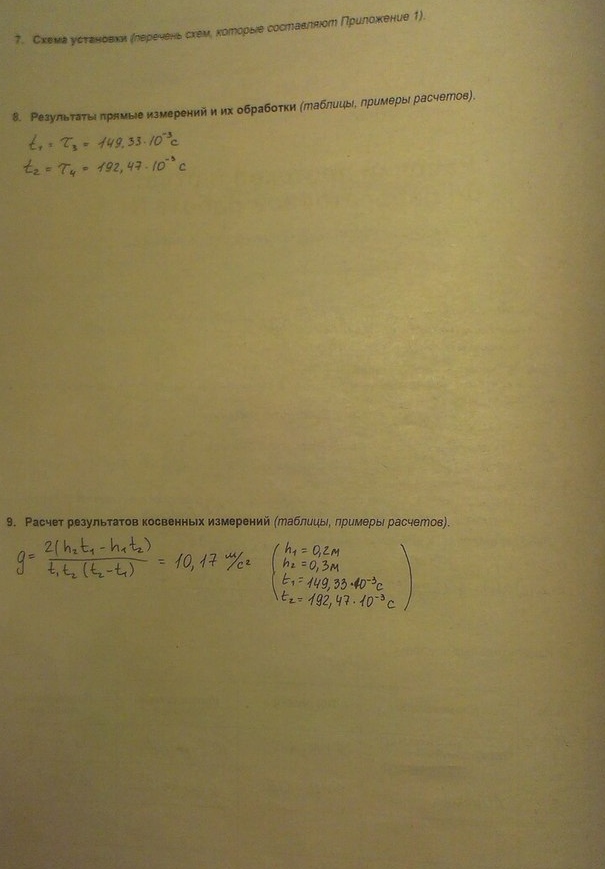 7. Схема установки (перечень схем, которые составляют Приложение 1).
8. Результаты прямые измерений и их обработки (таблицы, примеры расчетов).
t₁ = τ₃ = 149,33·10⁻³с
t₂ = τ₄ = 192,47·10⁻³ с
9. Расчет результатов косвенных измерений (таблицы, примеры расчетов).
g = 2(h₂t₁ - h₁t₂) / t₁t₂(t₂-t₁) = 10,17 м/с²
(h₁ = 0,2м
h₂ = 0,3м
t₁ = 149,33·10⁻³с
t₂ = 192,47·10⁻³ с)